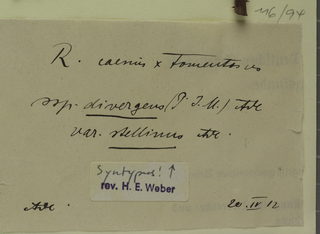 116/94
R. caesius x tomentosus
ssp. divergens (P. J. M.) Ade
var. stellinus Ade.
Syntypus! ↑
rev. H. E. Weber
Ade
20. IV 12